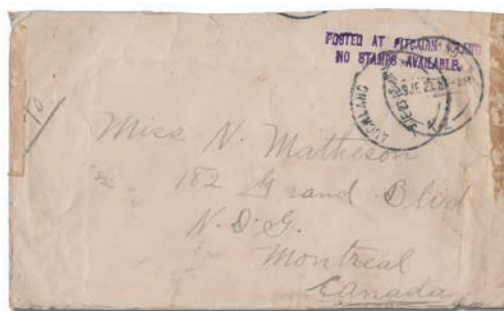 POSTED AT PITCAIRN ISLAND
NO STAMPS AVAILABLE.
AUCKLAND
To
Miss. N. Matheson
182 Grand Blvd
N.D.G.
Montreal
Canada